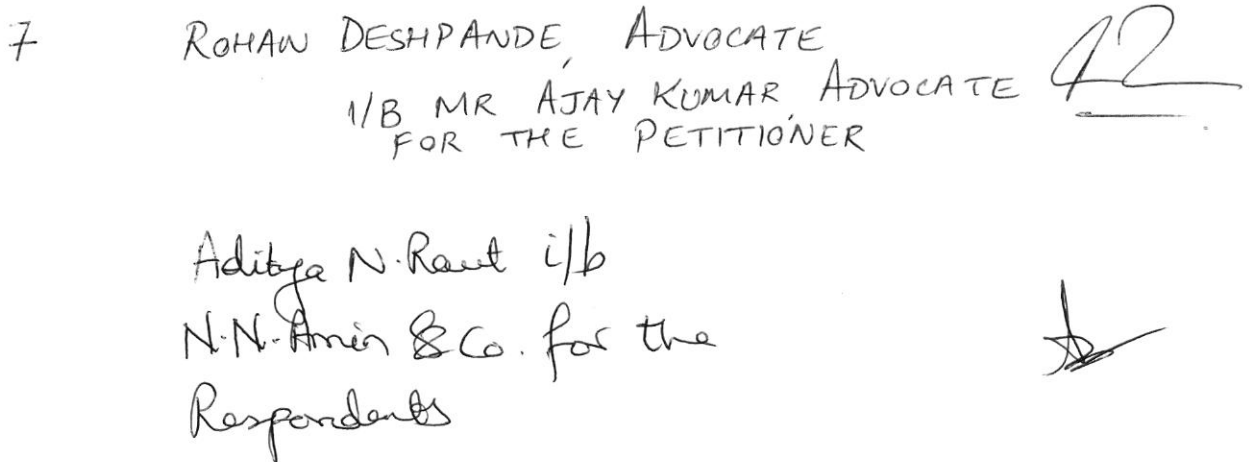 7 ROHAN DESHPANDE, ADVOCATE
i/B MR AJAY KUMAR, ADVOCATE
FOR THE PETITIONER
Aditya N. Raut i/b
N.N. Amin & Co. for the
Respondents